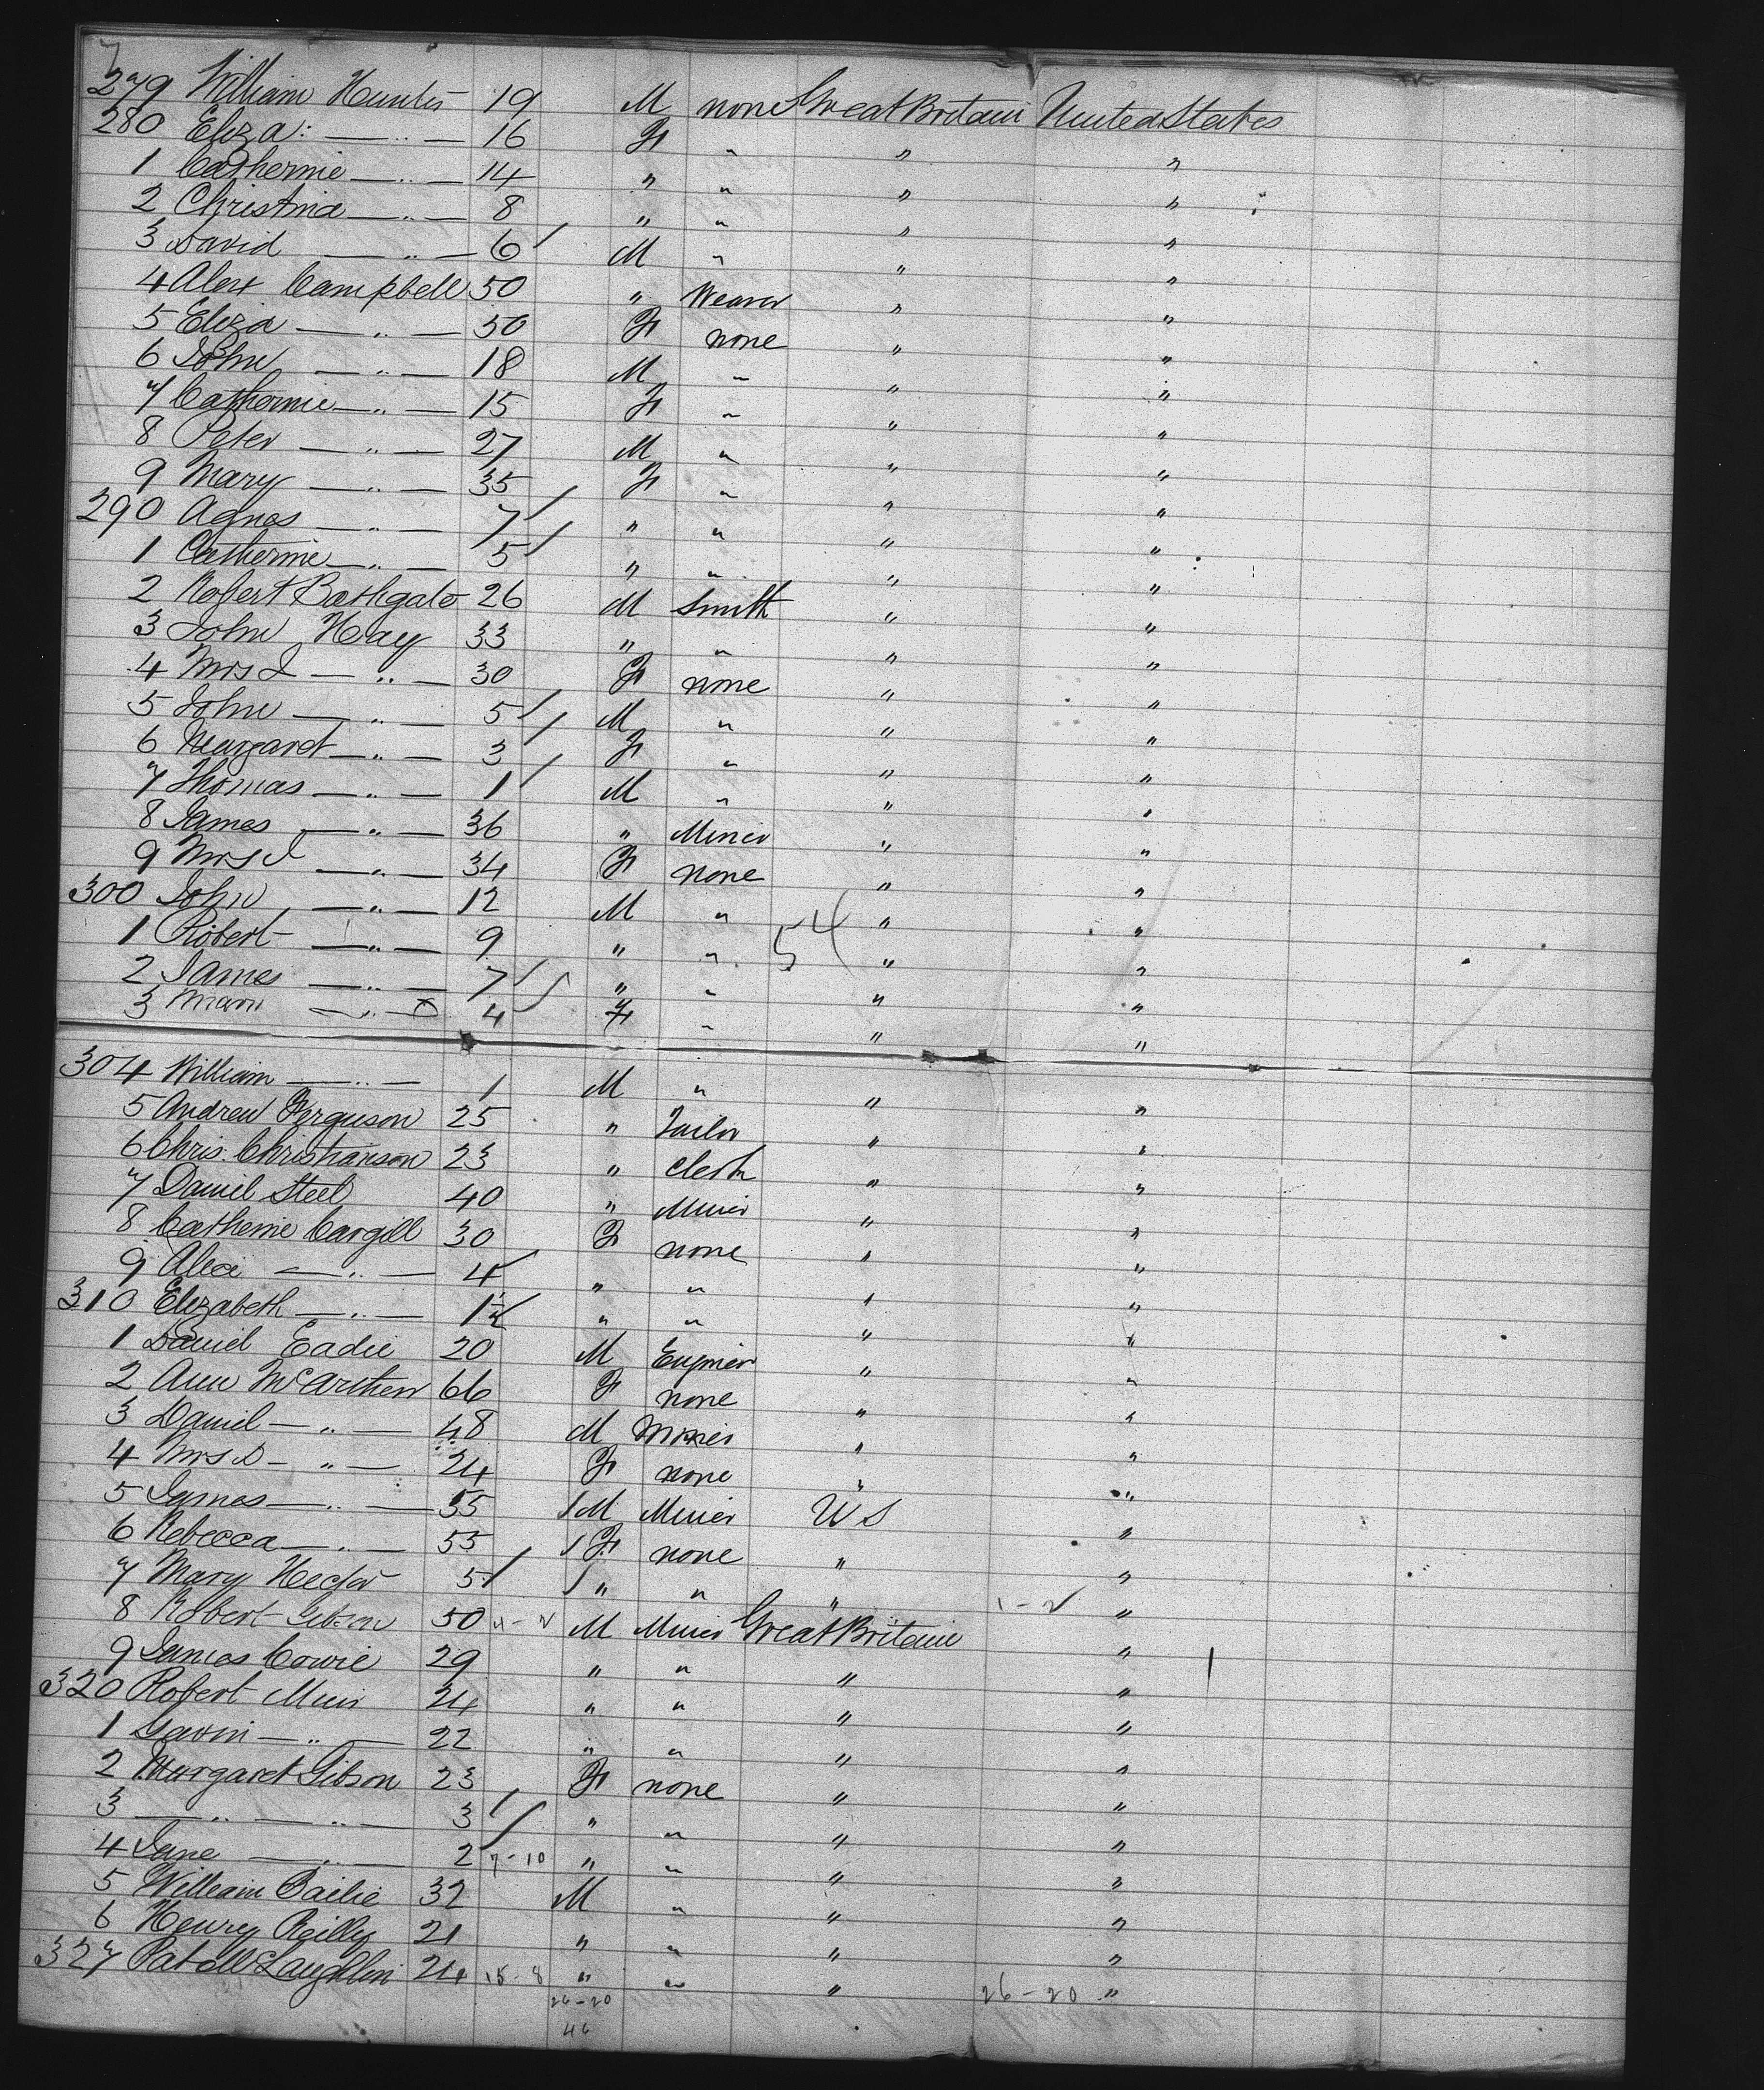 7
279 William Hunter 19 M none Great Britain United States
280 Eliza: — " — 16 F " " "
1 Catherine — " — 14 " " " "
2 Christina — " — 8 " " " "
3 David — " — 6 / M " " "
4 Alex Campbell 50 " Weaver " "
5 Eliza — " — 50 F none " "
6 John — " — 18 M " " "
7 Catherine — " — 15 F " " "
8 Peter — " — 27 M " " "
9 Mary — " — 35 F " " "
290 Agnes — " — 7 / " " " "
1 Catherine — " — 5 / " " " "
2 Robert Bathgate 26 M Smith " "
3 John Hay 33 " " " "
4 Mrs J — " — 30 F none " "
5 John — " — 5 / M " " "
6 Margaret — " — 3 / F " " "
7 Thomas — " — 1 / M " " "
8 James — " — 36 " Miner " "
9 Mrs J — " — 34 F none " "
300 John — " — 12 M " " "
1 Robert — " — 9 " " 54 " "
2 James — " — 7 / " " " "
3 — " — 4 / F " " "
304 William — " — 1 M " " "
5 Andrew Ferguson 25 " Tailor " "
6 Chris. Christianson 23 " Clerk " "
7 Daniel Steel 40 " Miner " "
8 Catherine Cargill 30 F none " "
9 Alice — " — 4 / " " " "
310 Elizabeth — " — 1½ / " " " "
1 Daniel Eadie 20 M Engineer " "
2 Ann McArthur 66 F none " "
3 Daniel — " — 48 M Miner " "
4 Mrs D — " — 24 F none " "
5 James — " — 55 / M Miner U S "
6 Rebecca — " — 55 / F none " "
7 Mary Hector 5 / / " " " "
8 Robert Gibson 50 M Miner Great Britain 1-2 "
9 James Cowie 29 " " " "
320 Robert Muir 24 " " " "
1 Gavin — " — 22 " " " "
2 Margaret Gibson 23 F none " "
3 — " — " — 3 / " " " "
4 Jane — " — 2 / 7-10 " " " "
5 William Bailie 32 M " " "
6 Henry Reilly 21 " " " "
327 Pat McLaughlin 24 15-8 " " " 26-20 "
26-20
46